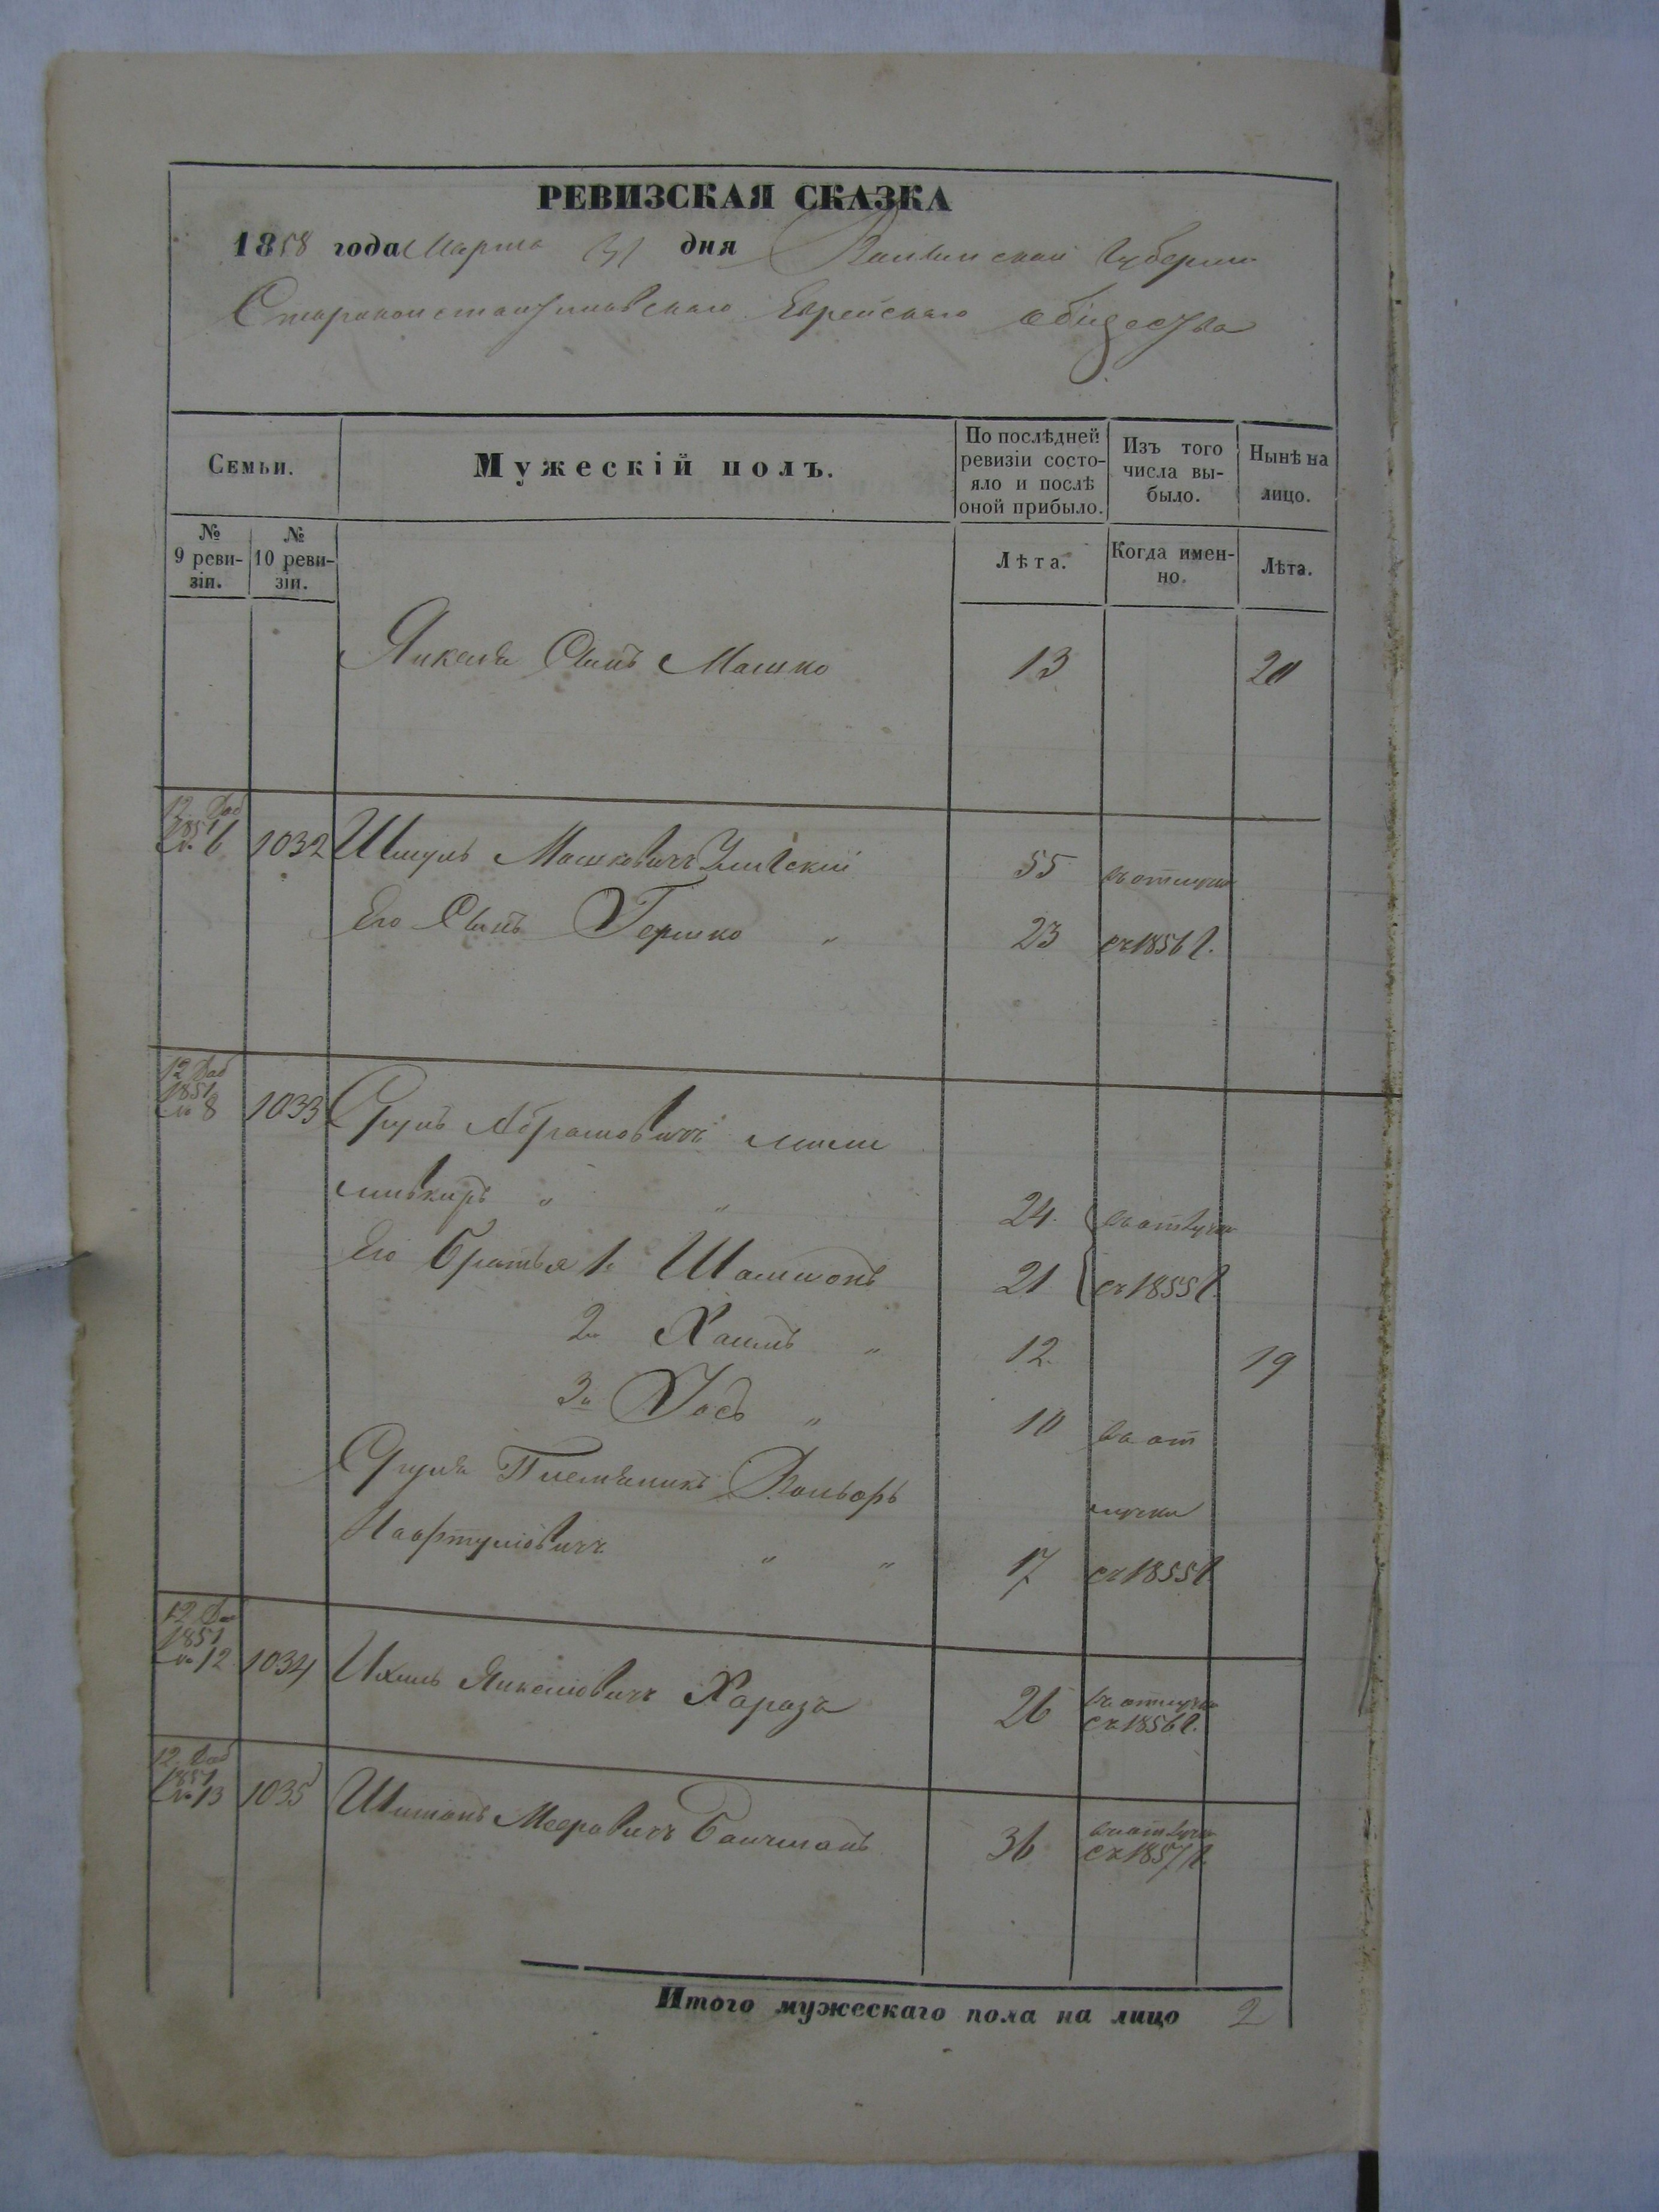 РЕВИЗСКАЯ СКАЗКА
1858 года Марта 31 дня Волынской Губернии
Староконстантиновскаго Еврейскаго общества
Семьи.
Мужескій полъ.
По послѣдней ревизіи состояло и послѣ оной прибыло.
Изъ того числа выбыло.
Нынѣ на лицо.
№ 9 ревизіи.
№ 10 ревизіи.
Лѣта.
Когда именно.
Лѣта.
Янкеля Сынъ Мошко 13 20
12 Доб
1851
№ 6 1032 Шмуль Мошковичъ 55 въ отлучке
Его Сынъ Гершко " 23 съ 1856 г.
12 Доб
1851
№ 8 1033 Срулъ Абрамовичъ
" " 24. въ отлучке
Его Братья 1й Шлиомъ 21 съ 1855 г.
2й Хаимъ " 12. 19
3й Иосъ " 10 въ от
Сруля Племяникъ Вольфъ лучки
" " 17 съ 1855 г.
12 До
1851
№ 12 1034 Ихиль Янкелиовичъ Харазъ 26 въ отлучке
съ 1856 г.
12 Доб
1851
№ 13 1035 Шимонъ Мееровичъ 36 въ отлучке
съ 1857 г.
Итого мужескаго пола на лицо 2